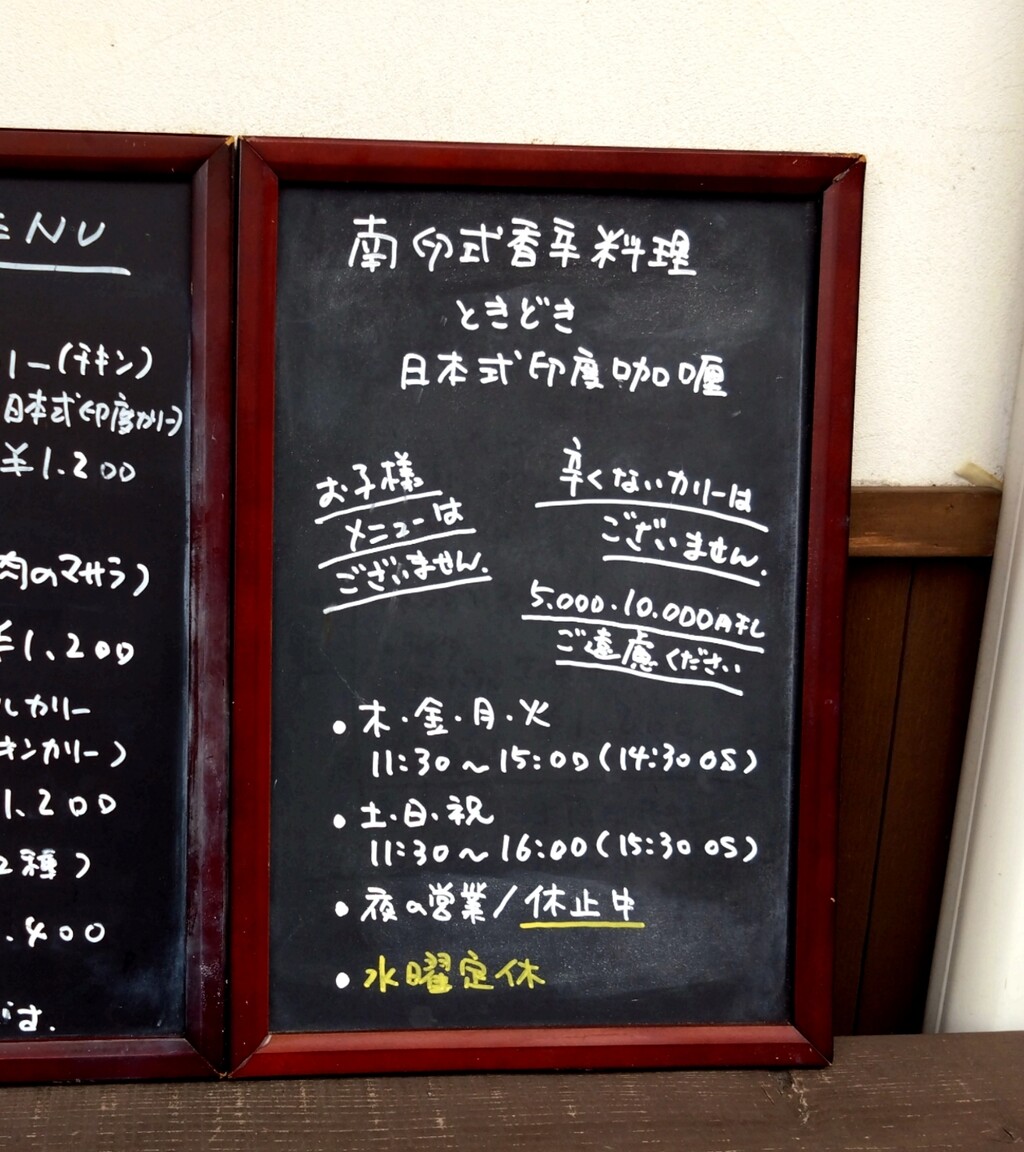 MENU
リー(チキン)
日本式印度カリー)
¥1.200
肉のマサラ)
¥1.200
ルカリー
キンカリー)
1.200
2種)
.400
です.
南印式香辛料理
ときどき
日本式印度咖喱
お子様
メニューは
ございません.
辛くないカリーは
ございません.
5.000.10.000円札
ご遠慮ください
・木・金・月・火
11:30〜15:00(14:30 OS)
・土・日・祝
11:30〜16:00(15:30 OS)
・夜の営業/休止中
・水曜定休